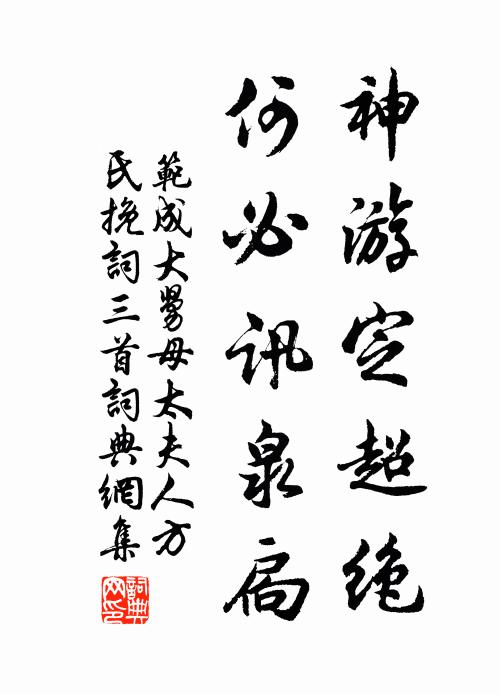 神游定超絶
何必訊泉扃
範成大舅母太夫人方
氏挽詞三首詞典網集
詞典
网印